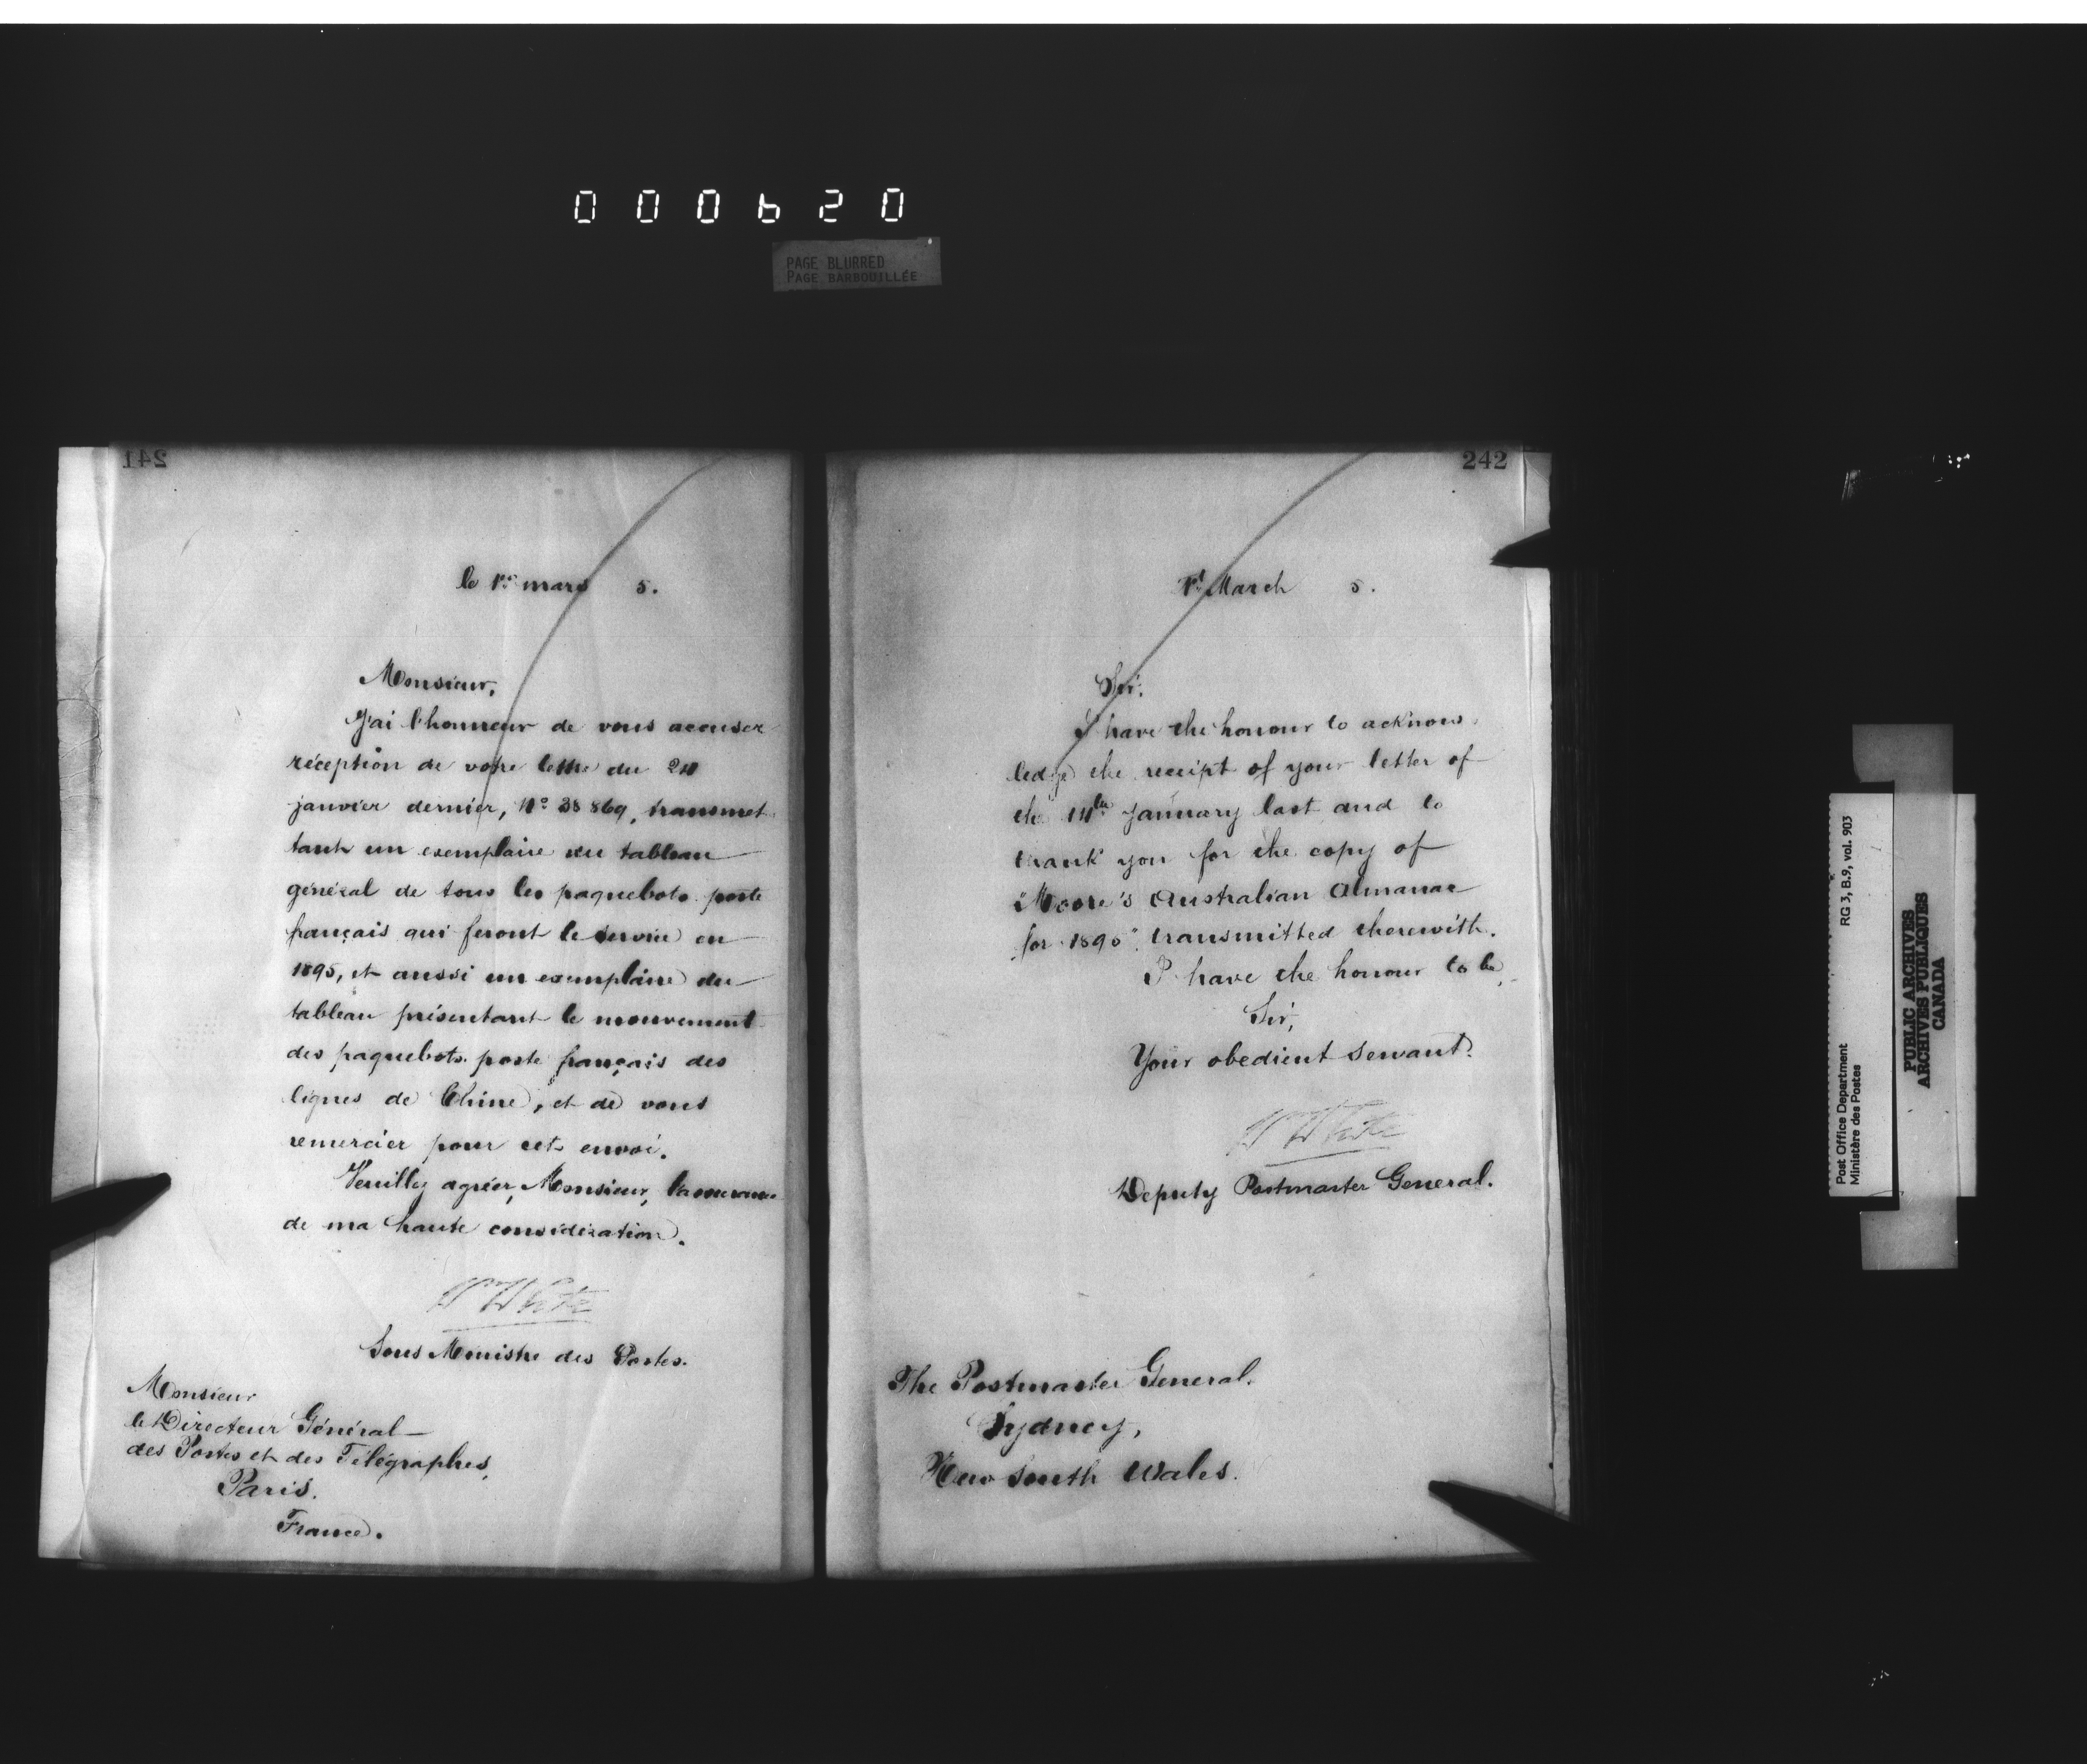 000620
PAGE BLURRED
PAGE BARBOUILLÉE
241
le 1er mars 5.
Monsieur,
J'ai l'honneur de vous accuser
réception de votre lettre du
janvier dernier, No 38869, transmet
tant un exemplaire du tableau
général de tous les paquebots-poste
français qui feront le service en
1895, et aussi un exemplaire du
tableau présentant le mouvement
des paquebots-poste français des
lignes de Chine, et de vous
remercier pour cet envoi.
Veuillez agréer, Monsieur, l'assurance
de ma haute considération.
Wm White
Sous Ministre des Postes.
Monsieur
le Directeur Général
des Postes et des Télégraphes,
Paris.
France.
242
1st March 5.
Sir,
I have the honour to acknow-
ledge the receipt of your letter of
the 14th January last and to
thank you for the copy of
"Moore's Australian Almanac
for 1895" transmitted therewith.
I have the honour to be,
Sir,
Your obedient servant.
Wm White
Deputy Postmaster General.
The Postmaster General.
Sydney,
New South Wales.
Post Office Department RG 3, B.9, vol. 903
Ministère des Postes
PUBLIC ARCHIVES
ARCHIVES PUBLIQUES
CANADA